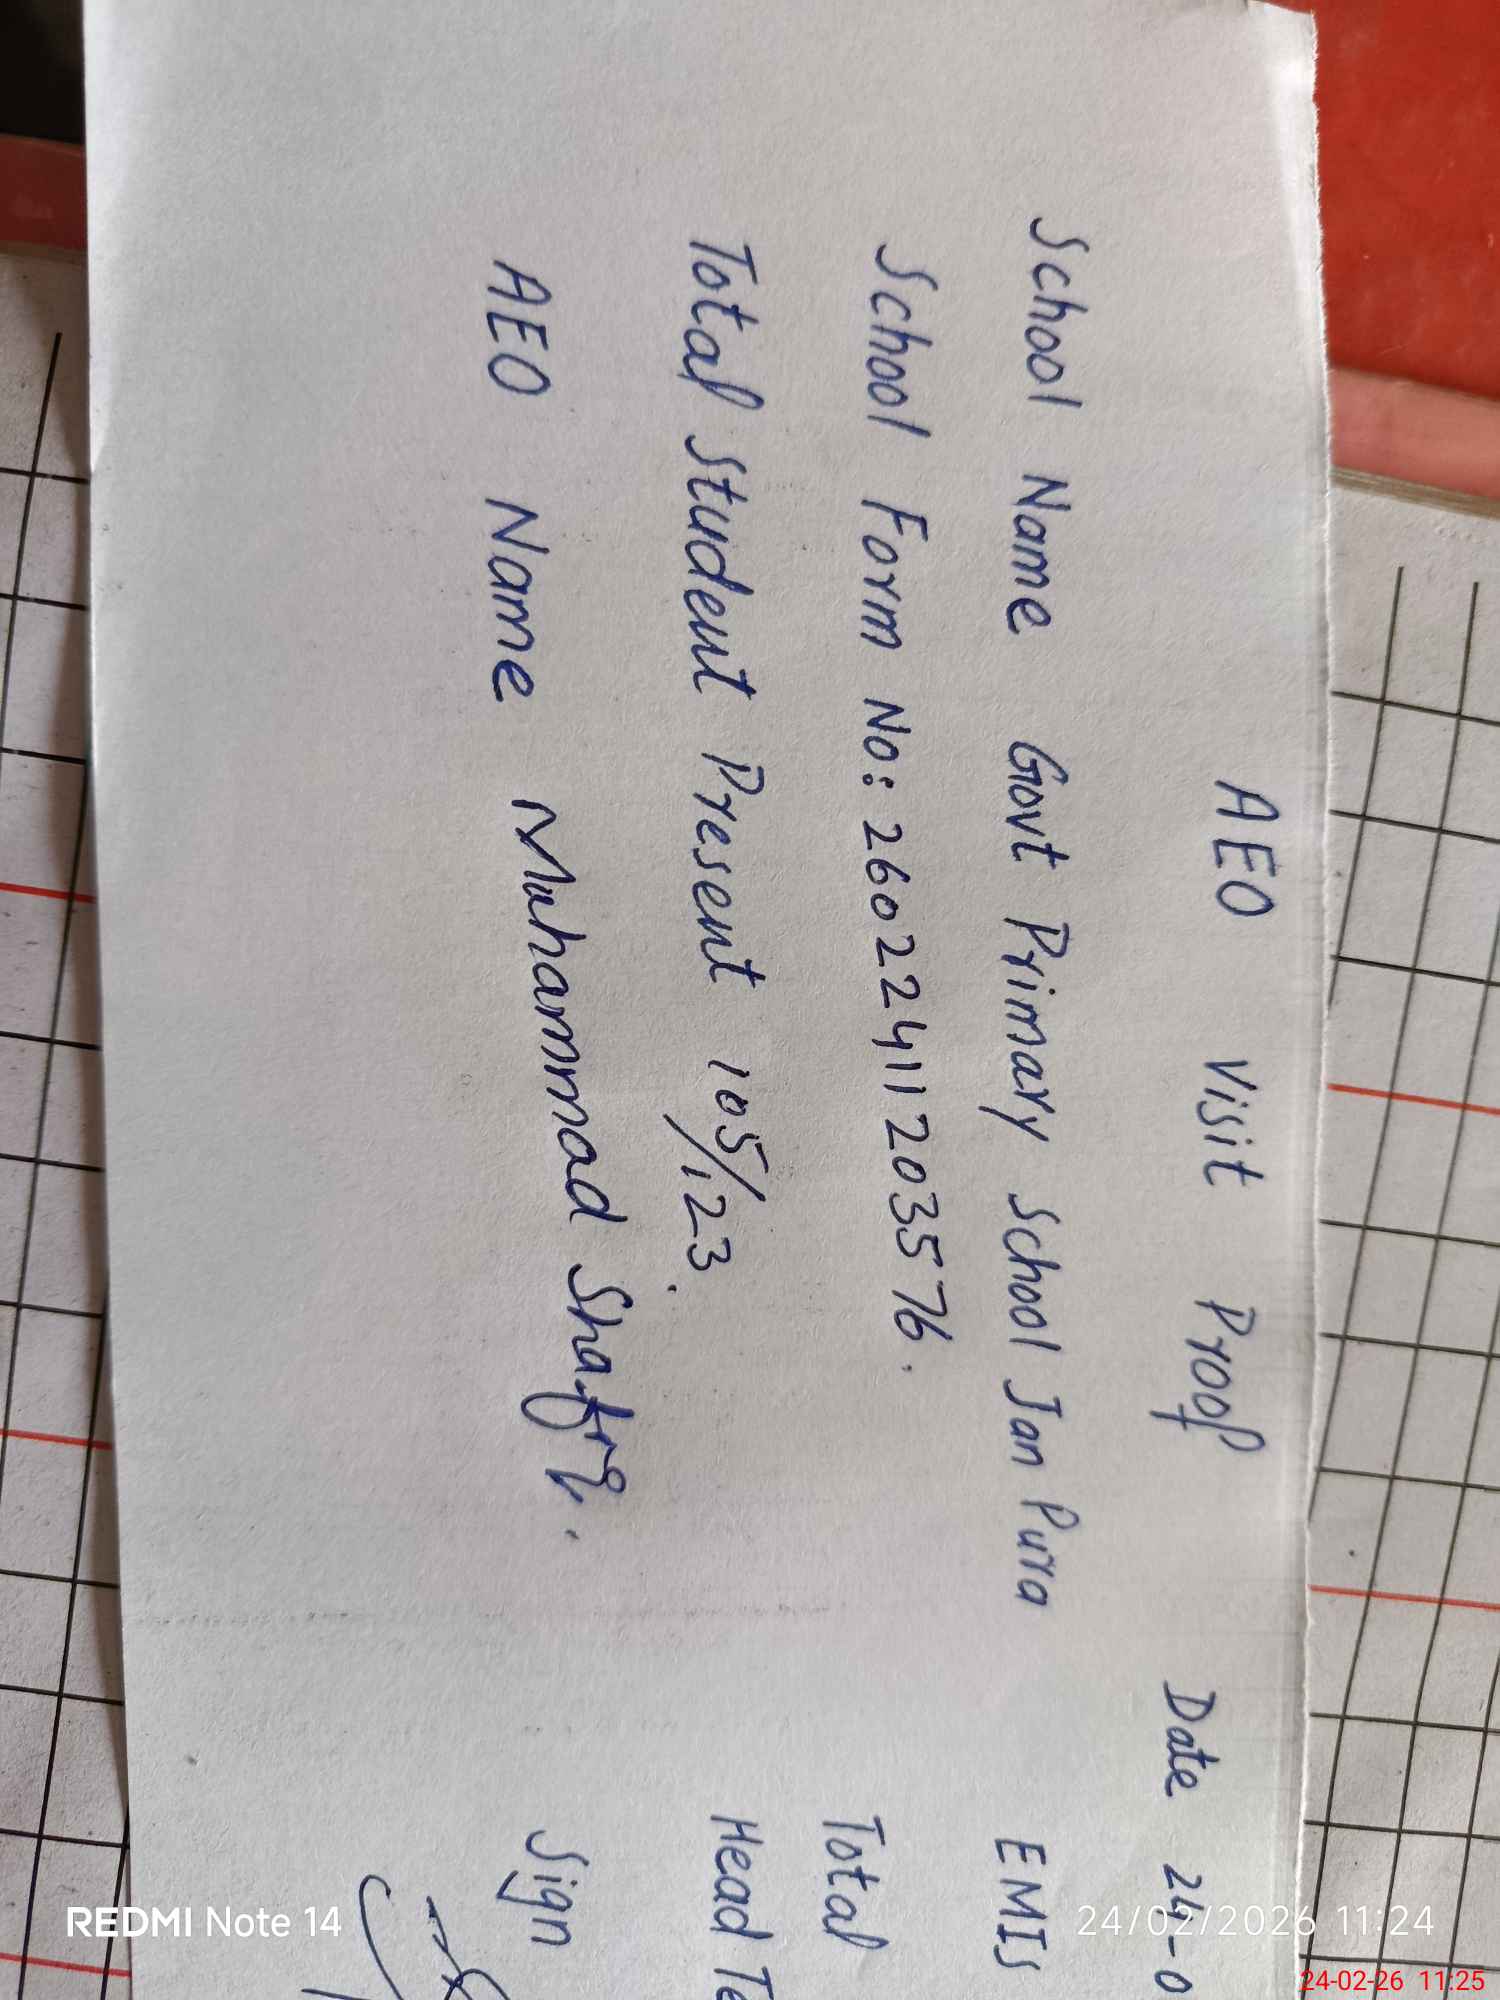 AEO Visit Proof Date 24-0
School Name Govt Primary School Jan Pura EMIS
School Form No: 26022411203576. Total
Total Student Present 105/123. Head Te
AEO Name Muhammad Shafiq. Sign
REDMI Note 14
24/02/2026 11:24
24-02-26 11:25